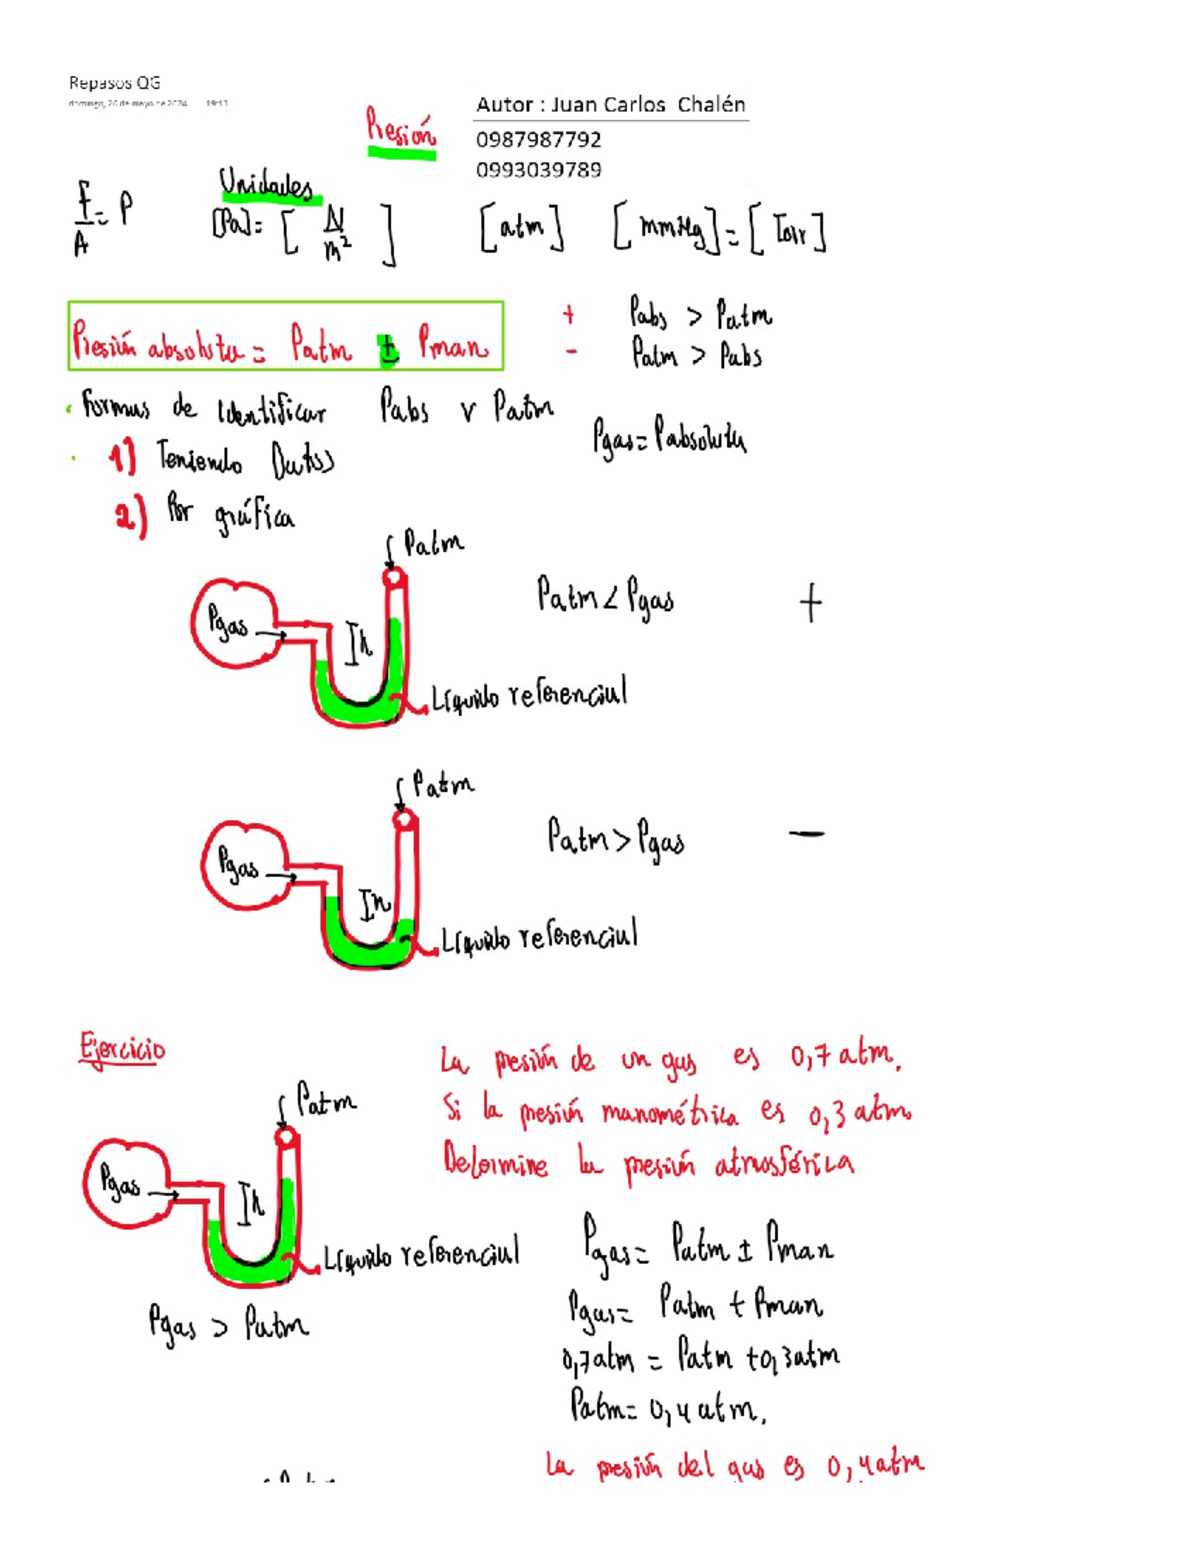 Repasos QG
domingo, 26 de mayo de 2024 19:13
Autor : Juan Carlos Chalén
0987987792
0993039789
Presión
F/A = P
Unidades
[Pa] = [ N/m² ] [atm] [mmHg] = [Torr]
Presión absoluta = Patm ± Pman
+ Pabs > Patm
- Patm > Pabs
• Formas de Identificar Pabs v Patm
Pgas = Pabsoluta
1) Teniendo Datos
2) Por gráfica
Patm
Pgas
h
Patm < Pgas +
Líquido referencial
Patm
Pgas
h
Patm > Pgas −
Líquido referencial
Ejercicio
La presión de un gas es 0,7 atm.
Si la presión manométrica es 0,3 atm.
Determine la presión atmosférica
Patm
Pgas
h
Líquido referencial
Pgas > Patm
Pgas = Patm ± Pman
Pgas = Patm + Pman
0,7 atm = Patm + 0,3 atm
Patm = 0,4 atm.
La presión del gas es 0,4 atm